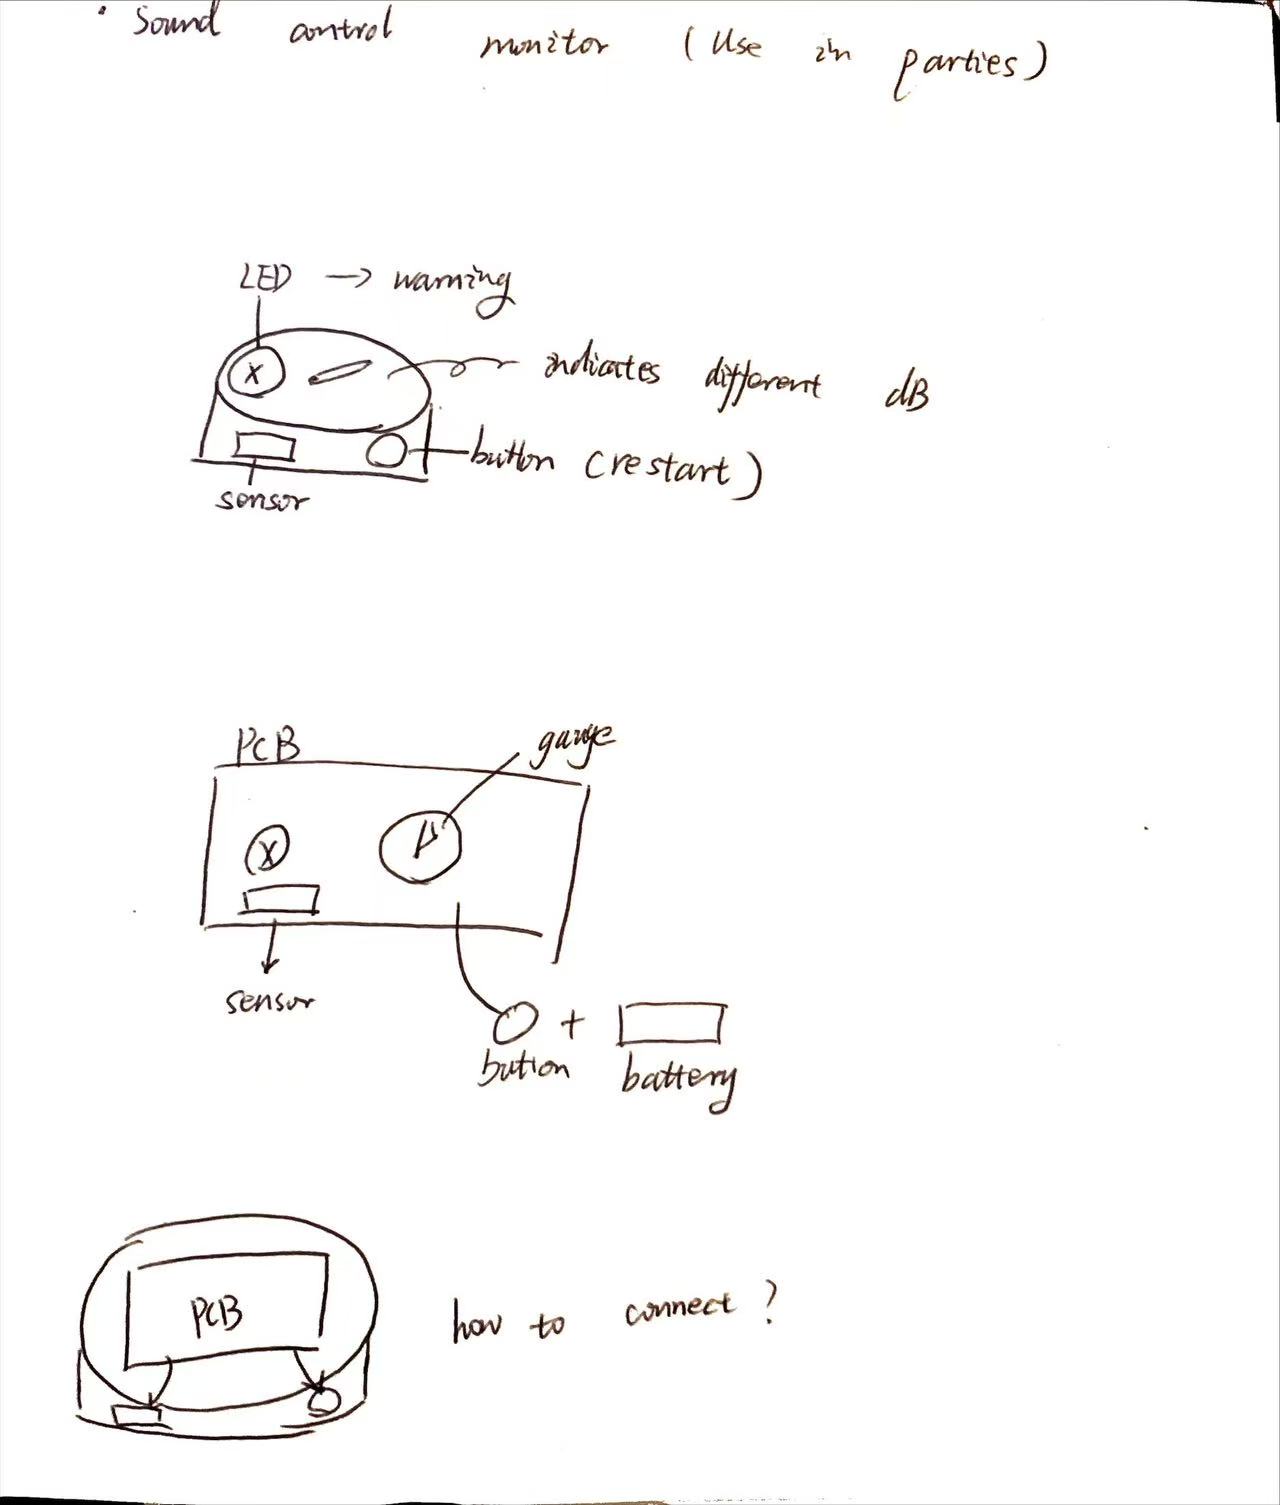 • Sound control monitor (Use in parties)
LED → warning
X
indicates different dB
button (restart)
sensor
PCB
gauge
X
sensor
button + battery
PCB
how to connect?